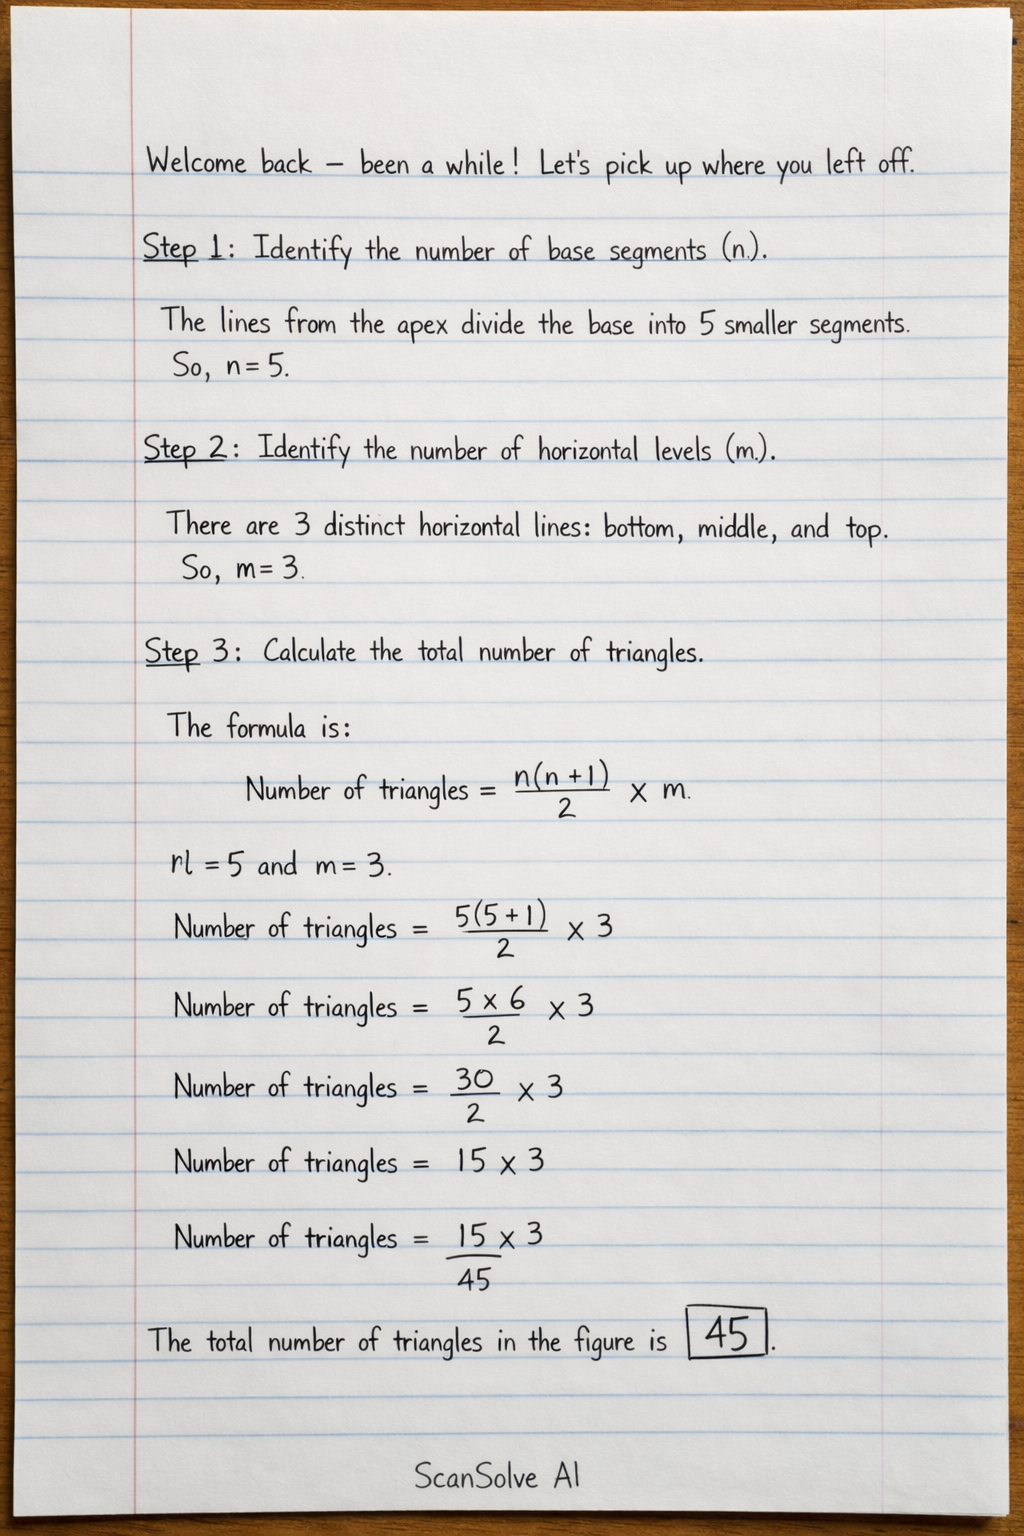 Welcome back – been a while! Let's pick up where you left off.
Step 1: Identify the number of base segments (n.).
The lines from the apex divide the base into 5 smaller segments.
So, n = 5.
Step 2: Identify the number of horizontal levels (m.).
There are 3 distinct horizontal lines: bottom, middle, and top.
So, m = 3.
Step 3: Calculate the total number of triangles.
The formula is:
Number of triangles = n(n+1)/2 × m.
rl = 5 and m = 3.
Number of triangles = 5(5+1)/2 × 3
Number of triangles = 5 × 6/2 × 3
Number of triangles = 30/2 × 3
Number of triangles = 15 × 3
Number of triangles = 15 × 3
45
The total number of triangles in the figure is 45.
ScanSolve AI